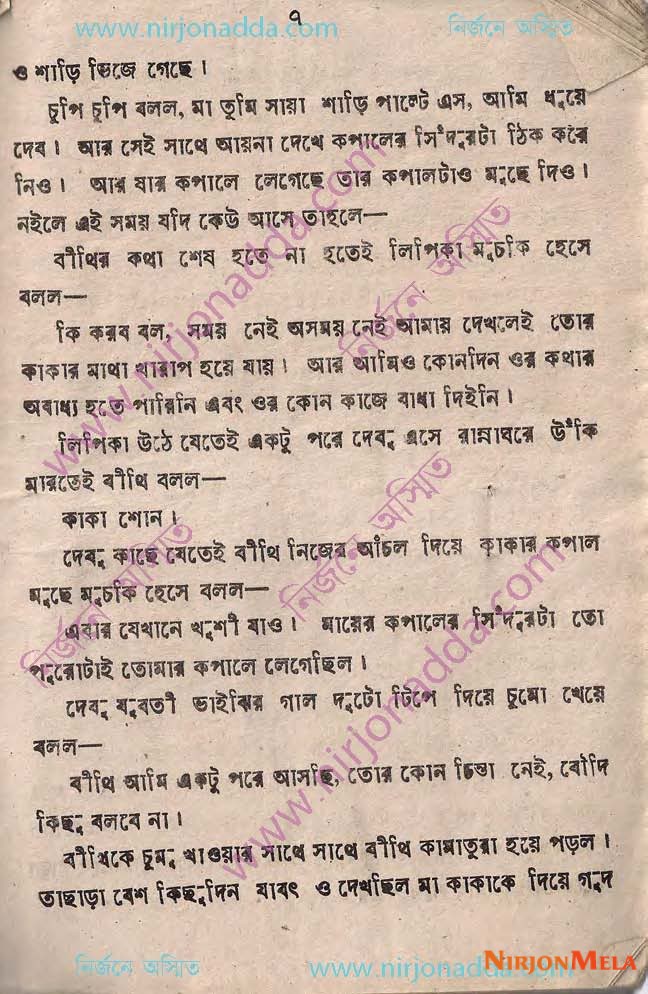 www.nirjonadda.com
৭
নির্জনে অস্মিতা
ও শাড়ি ভিজে গেছে।
চুপি চুপি বলল, মা তুমি সায়া শাড়ি পাল্টে এস, আমি ধুয়ে
দেব। আর সেই সাথে আয়না দেখে কপালের সিঁদুরটা ঠিক করে
নিও। আর যার কপালে লেগেছে তার কপালটাও মুছে দিও।
নইলে এই সময় যদি কেউ আসে তাহলে—
বীথির কথা শেষ হতে না হতেই লিপিকা মুচকি হেসে
বলল—
কি করব বল, সময় নেই অসময় নেই আমায় দেখলেই তোর
কাকার মাথা খারাপ হয়ে যায়। আর আমিও কোনদিন ওর কথার
অবাধ্য হতে পারিনি এবং ওর কোন কাজে বাধা দিইনি।
লিপিকা উঠে যেতেই একটু পরে দেবু এসে রান্নাঘরে উঁকি
মারতেই বীথি বলল—
কাকা শোন।
দেবু কাছে যেতেই বীথি নিজের আঁচল দিয়ে কাকার কপাল
মুছে মুচকি হেসে বলল—
এবার যেখানে খুশী যাও। মায়ের কপালের সিঁদুরটা তো
পুরোটাই তোমার কপালে লেগেছিল।
দেবু যুবতী ভাইঝির গাল দুটো টিপে দিয়ে চুমো খেয়ে
বলল—
বীথি আমি একটু পরে আসছি, তোর কোন চিন্তা নেই, বৌদি
কিছু বলবে না।
বীথিকে চুমু খাওয়ার সাথে সাথে বীথি কামাতুরা হয়ে পড়ল।
তাছাড়া বেশ কিছুদিন যাবৎ ও দেখছিল মা কাকাকে দিয়ে গুদ
নির্জনে অস্মিতা
www.nirjonadda.com
NIRJONMELA